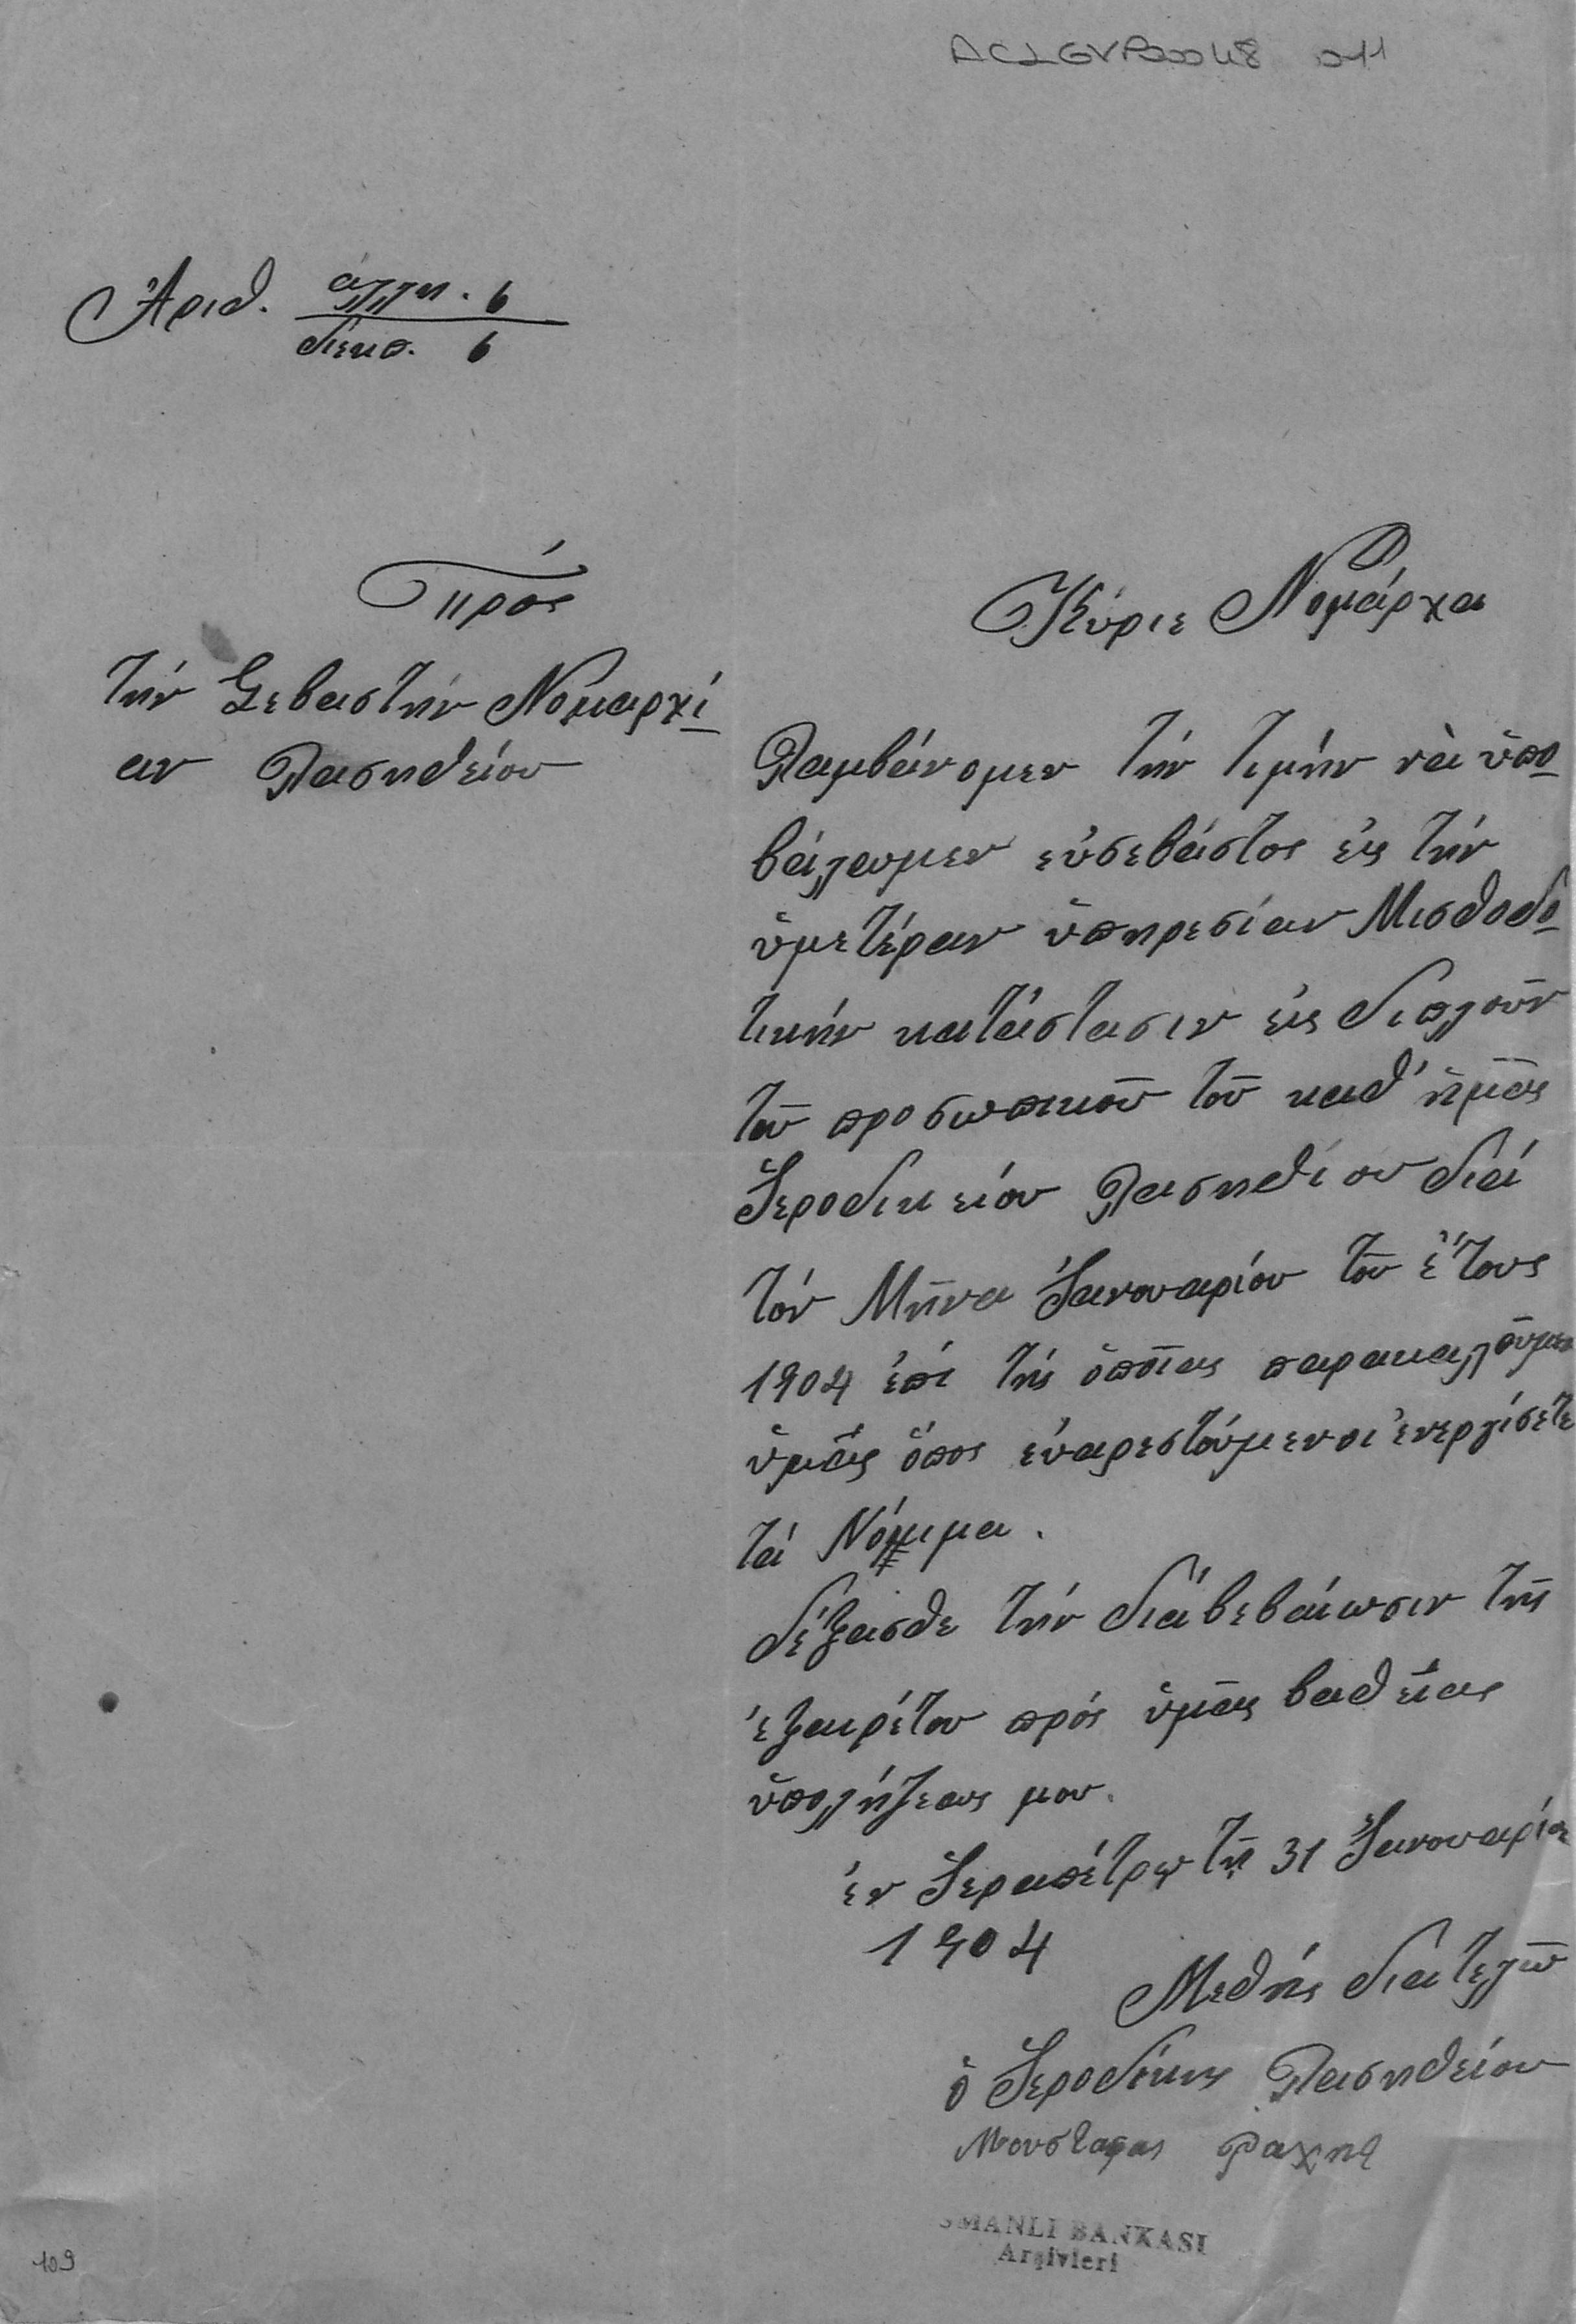 ACLGVP00048 011
Ἀριθ. ἀλλη. 6
διεκπ. 6
Πρός
τήν Σεβαστήν Νομαρχί
αν Λασηθείου
Κύριε Νομάρχα
Λαμβάνομεν τήν τιμήν νὰ ὑπο
βάλωμεν εὐσεβάστος εἰς τήν
ὑμετέραν ὑπηρεσίαν Μισθοδο
τικήν κατάστασιν εἰς διπλοῦν
τοῦ προσωπικοῦ τοῦ καθ' ἡμᾶς
Ἱεροδικείου Λασηθίου διά
τόν Μῆνα Ἰανουαρίου τοῦ ἔτους
1904 ἐπί τής ὁποῖας παρακαλοῦμεν
ὑμᾶς ὅπος εὐαρεστούμενοι ἐνεργίσετε
τά Νόμιμα.
δέξασθε τήν διάβεβαίωσιν τῆς
ἐξαιρέτου πρός ὑμᾶς βαθείας
ὑπολλήξεως μου.
ἐν Ἱεραπέτρᾳ τῇ 31 Ἰανουαρίου
1904
Μεθής διατελῶ
ὁ Ἱεροδίκης Λασηθείου
Μουσταφας
SMANLI BANKASI
Arşivleri
109